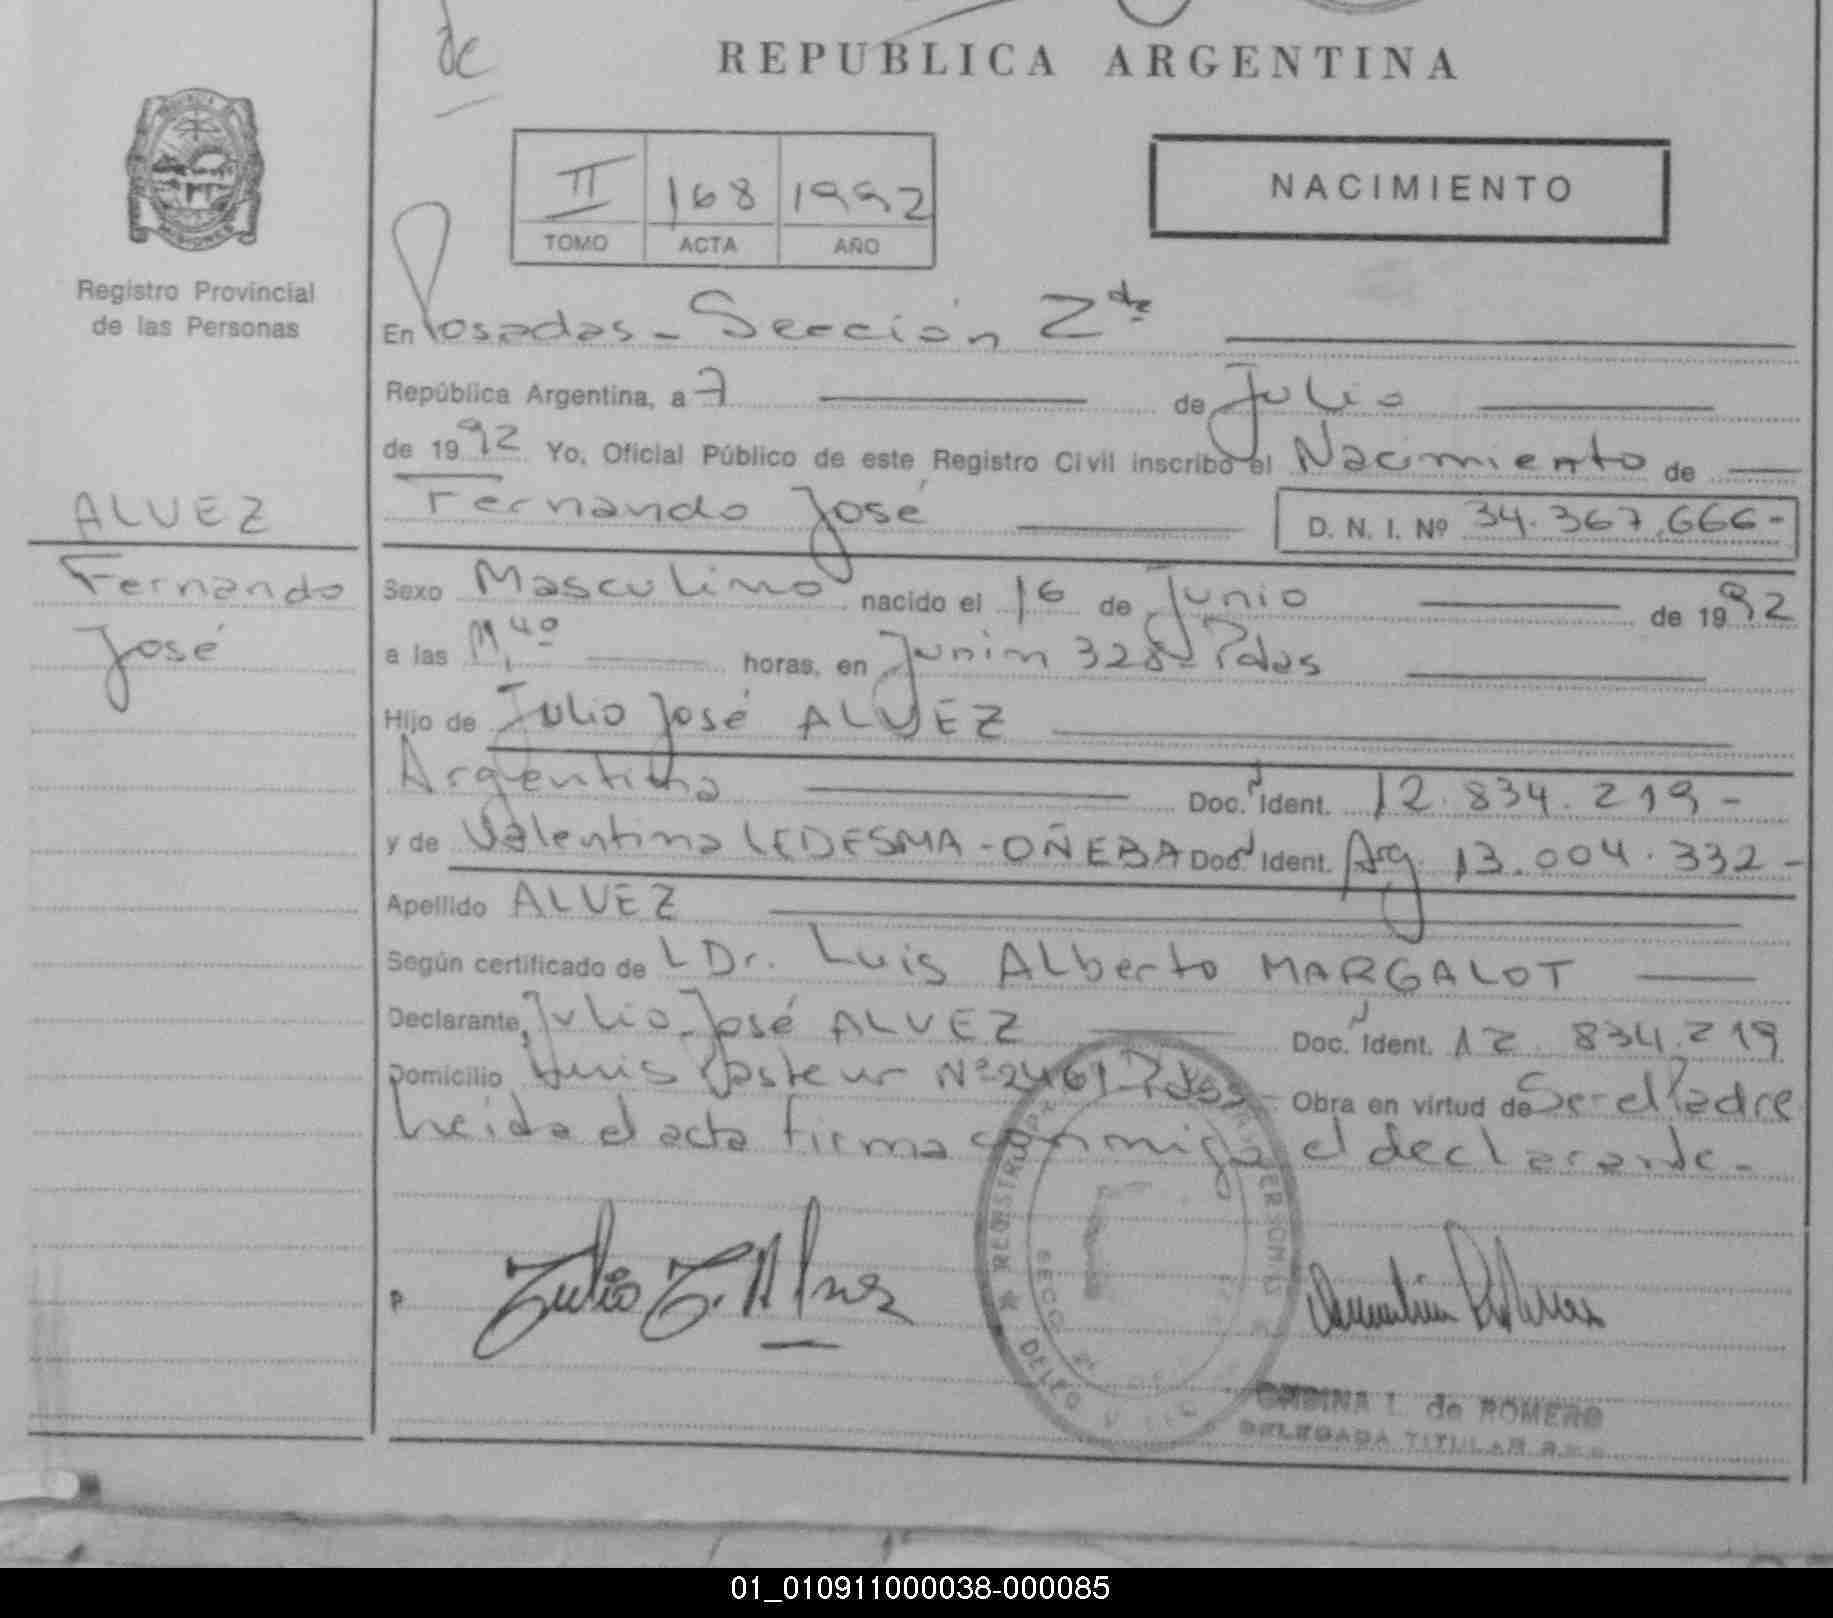 de
REPUBLICA ARGENTINA
MISIONES
Registro Provincial
de las Personas
II 168 1992
TOMO ACTA AÑO
NACIMIENTO
En Posadas - Sección 2da
República Argentina, a 7 de Julio
de 1992 Yo, Oficial Público de este Registro Civil inscribo el Nacimiento de
ALVEZ
Fernando José D. N. I. Nº 34.367.666-
Fernando
José
Sexo Masculino nacido el 16 de Junio de 1992
a las 11,40 horas, en Junin 328 - Pdas
Hijo de Julio José ALVEZ
Argentina Doc. Ident. 12.834.219-
y de Valentina LEDESMA-OÑEBA Doc. Ident. Arg. 13.004.332-
Apellido ALVEZ
Según certificado de L Dr. Luis Alberto MARGALOT
Declarante, Julio José ALVEZ Doc. Ident. 12.834.219
Domicilio Luis Pasteur Nº 2461 - Pdas - Obra en virtud de Ser el Padre
Leida el acta firma conmigo el declarante -
Julio J. Alvez
REGISTRO
SECC
DELEG
L. de ROMERO
DELEGADA TITULAR
01_010911000038-000085